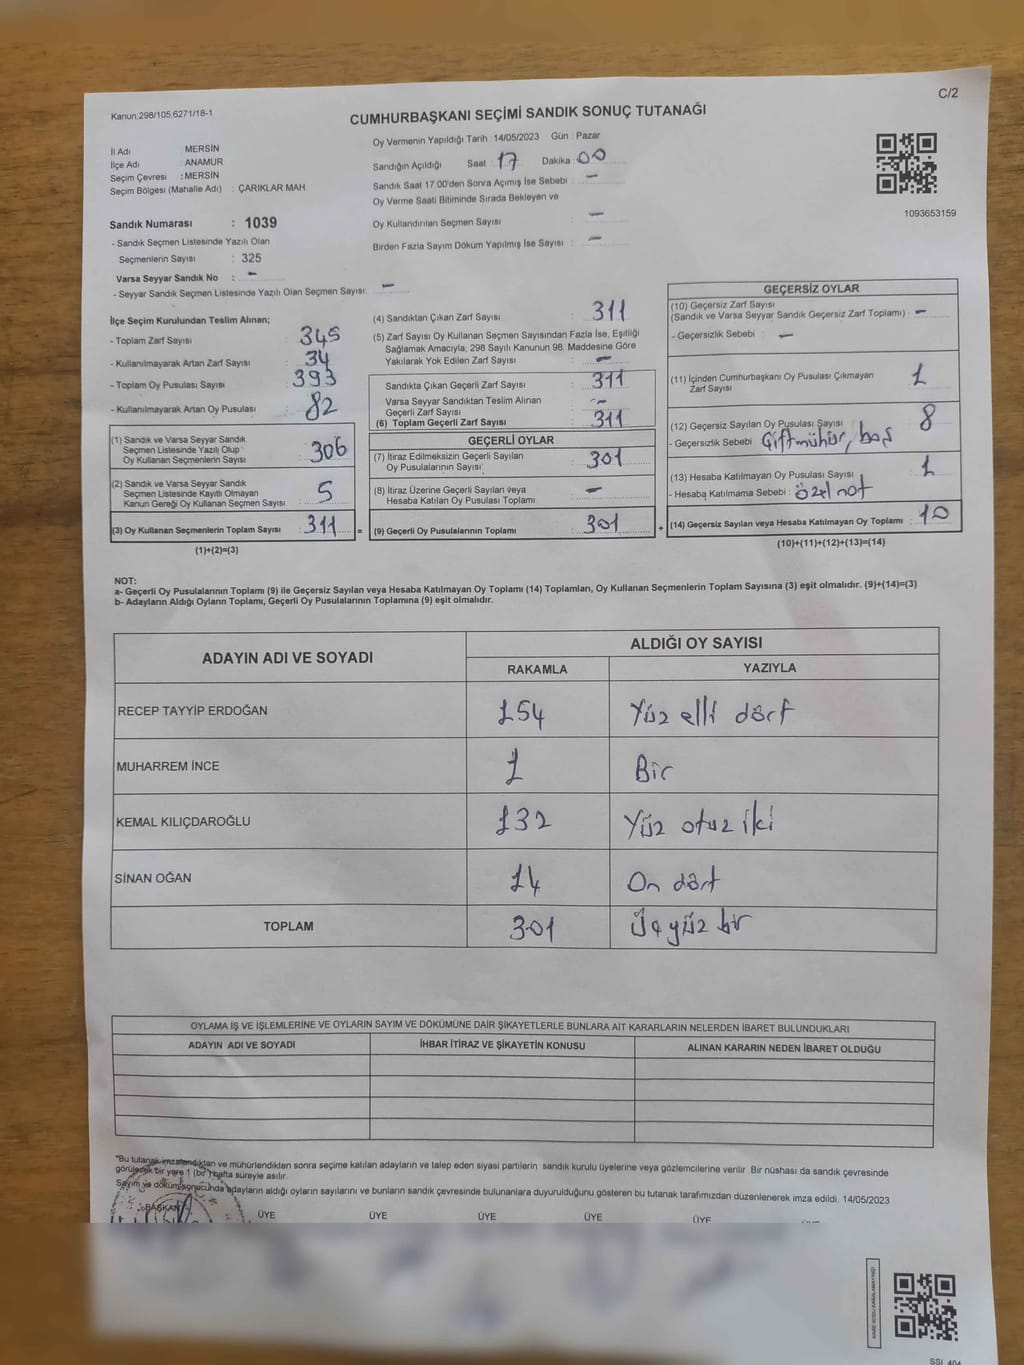 C/2
Kanun;298/105,6271/18-1
CUMHURBAŞKANI SEÇİMİ SANDIK SONUÇ TUTANAĞI
İl Adı MERSİN
İlçe Adı ANAMUR
Seçim Çevresi : MERSİN
Seçim Bölgesi (Mahalle Adı) : ÇARIKLAR MAH
Sandık Numarası : 1039
- Sandık Seçmen Listesinde Yazılı Olan
Seçmenlerin Sayısı : 325
Varsa Seyyar Sandık No : -
- Seyyar Sandık Seçmen Listesinde Yazılı Olan Seçmen Sayısı: -
Oy Vermenin Yapıldığı Tarih : 14/05/2023 Gün : Pazar
Sandığın Açıldığı Saat : 17 Dakika : 00
Sandık Saat 17:00'den Sonra Açımış İse Sebebi : -
Oy Verme Saati Bitiminde Sırada Bekleyen ve
Oy Kullandırılan Seçmen Sayısı : -
Birden Fazla Sayım Döküm Yapılmış İse Sayısı : -
1093653159
İlçe Seçim Kurulundan Teslim Alınan;
- Toplam Zarf Sayısı : 345
- Kullanılmayarak Artan Zarf Sayısı : 34
- Toplam Oy Pusulası Sayısı : 393
- Kullanılmayarak Artan Oy Pusulası : 82
(1) Sandık ve Varsa Seyyar Sandık
Seçmen Listesinde Yazılı Olup
Oy Kullanan Seçmenlerin Sayısı : 306
(2) Sandık ve Varsa Seyyar Sandık
Seçmen Listesinde Kayıtlı Olmayan
Kanun Gereği Oy Kullanan Seçmen Sayısı : 5
(3) Oy Kullanan Seçmenlerin Toplam Sayısı : 311 =
(1)+(2)=(3)
(4) Sandıktan Çıkan Zarf Sayısı : 311
(5) Zarf Sayısı Oy Kullanan Seçmen Sayısından Fazla İse, Eşitliği
Sağlamak Amacıyla, 298 Sayılı Kanunun 98. Maddesine Göre
Yakılarak Yok Edilen Zarf Sayısı : -
Sandıkta Çıkan Geçerli Zarf Sayısı : 311
Varsa Seyyar Sandıktan Teslim Alınan
Geçerli Zarf Sayısı : -
(6) Toplam Geçerli Zarf Sayısı : 311
GEÇERLİ OYLAR
(7) İtiraz Edilmeksizin Geçerli Sayılan
Oy Pusulalarının Sayısı : 301
(8) İtiraz Üzerine Geçerli Sayılan veya
Hesaba Katılan Oy Pusulası Toplamı : -
(9) Geçerli Oy Pusulalarının Toplamı : 301 +
GEÇERSİZ OYLAR
(10) Geçersiz Zarf Sayısı
(Sandık ve Varsa Seyyar Sandık Geçersiz Zarf Toplamı) : -
- Geçersizlik Sebebi : -
(11) İçinden Cumhurbaşkanı Oy Pusulası Çıkmayan
Zarf Sayısı : 1
(12) Geçersiz Sayılan Oy Pusulası Sayısı : 8
- Geçersizlik Sebebi : Çiftmühür, boş
(13) Hesaba Katılmayan Oy Pusulası Sayısı : 1
- Hesaba Katılmama Sebebi : özel not
(14) Geçersiz Sayılan veya Hesaba Katılmayan Oy Toplamı : 10
(10)+(11)+(12)+(13)=(14)
NOT:
a- Geçerli Oy Pusulalarının Toplamı (9) ile Geçersiz Sayılan veya Hesaba Katılmayan Oy Toplamı (14) Toplamları, Oy Kullanan Seçmenlerin Toplam Sayısına (3) eşit olmalıdır. (9)+(14)=(3)
b- Adayların Aldığı Oyların Toplamı, Geçerli Oy Pusulalarının Toplamına (9) eşit olmalıdır.
ADAYIN ADI VE SOYADI
ALDIĞI OY SAYISI
RAKAMLA YAZIYLA
RECEP TAYYİP ERDOĞAN 154 Yüz elli dört
MUHARREM İNCE 1 Bir
KEMAL KILIÇDAROĞLU 132 Yüz otuz iki
SİNAN OĞAN 14 On dört
TOPLAM 301 Üç yüz bir
OYLAMA İŞ VE İŞLEMLERİNE VE OYLARIN SAYIM VE DÖKÜMÜNE DAİR ŞİKAYETLERLE BUNLARA AİT KARARLARIN NELERDEN İBARET BULUNDUKLARI
ADAYIN ADI VE SOYADI İHBAR İTİRAZ VE ŞİKAYETİN KONUSU ALINAN KARARIN NEDEN İBARET OLDUĞU
*Bu tutanak imzalandıktan ve mühürlendikten sonra seçime katılan adayların ve talep eden siyasi partilerin sandık kurulu üyelerine veya gözlemcilerine verilir. Bir nüshası da sandık çevresinde
görülecek bir yere 1 (bir) hafta süreyle asılır.
Sayım ve döküm sonucunda adayların aldığı oyların sayılarını ve bunların sandık çevresinde bulunanlara duyurulduğunu gösteren bu tutanak tarafımızdan düzenlenerek imza edildi. 14/05/2023
BAŞKAN ÜYE ÜYE ÜYE ÜYE ÜYE